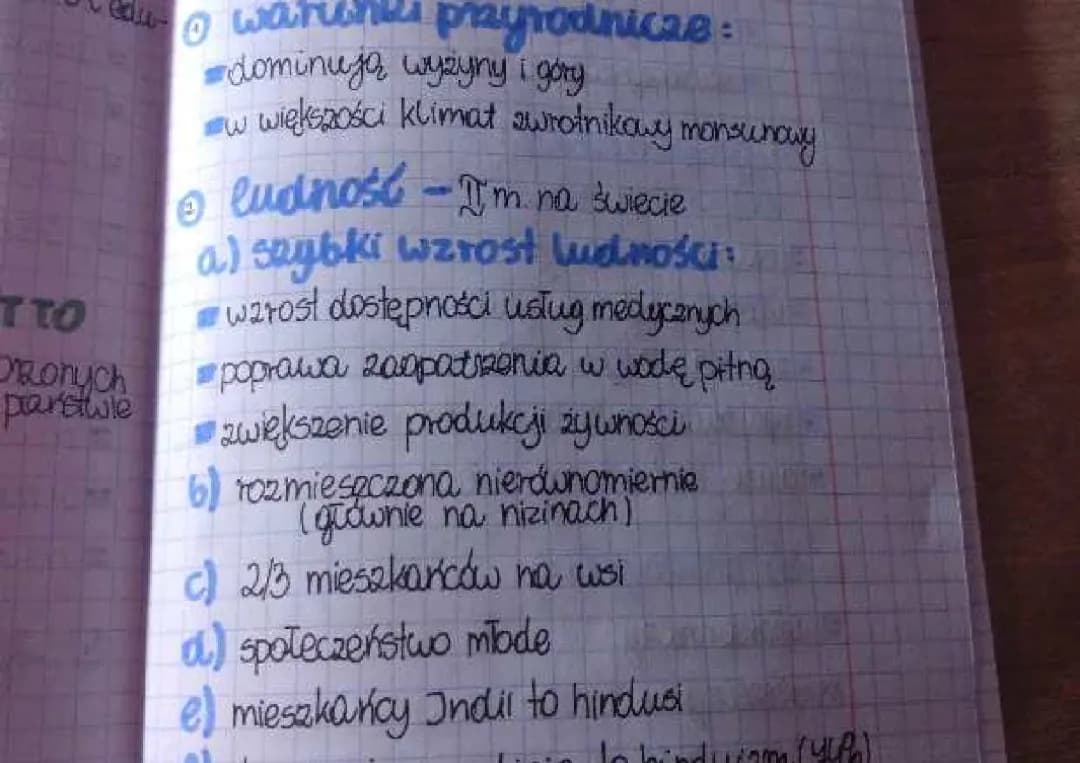 ① warunki przyrodnicze:
dominują wyżyny i góry
w większości klimat zwrotnikowy monsunowy
② ludność - II m. na świecie
a) szybki wzrost ludności:
wzrost dostępności usług medycznych
poprawa zaopatrzenia w wodę pitną
zwiększenie produkcji żywności
b) rozmieszczona nierównomiernie
(głównie na nizinach)
c) 2/3 mieszkańców na wsi
d) społeczeństwo młode
e) mieszkańcy Indii to hindusi
to hinduizm
T TO
państwie